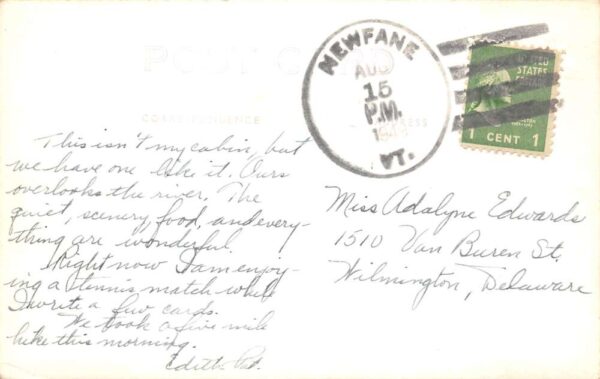 POST CARD
CORRESPONDENCE
ADDRESS
NEWFANE
AUG
15
P.M.
VT.
UNITED
STATES
1 CENT 1
This isn't my cabin, but
we have one like it. Ours
overlooks the river. The
quiet, scenery, food, and every-
thing are wonderful.
Right now I am enjoy-
ing a tennis match while
I write a few cards.
We took a five mile
hike this morning.
Edith
Miss Adalyne Edwards
1510 Van Buren St.
Wilmington, Delaware